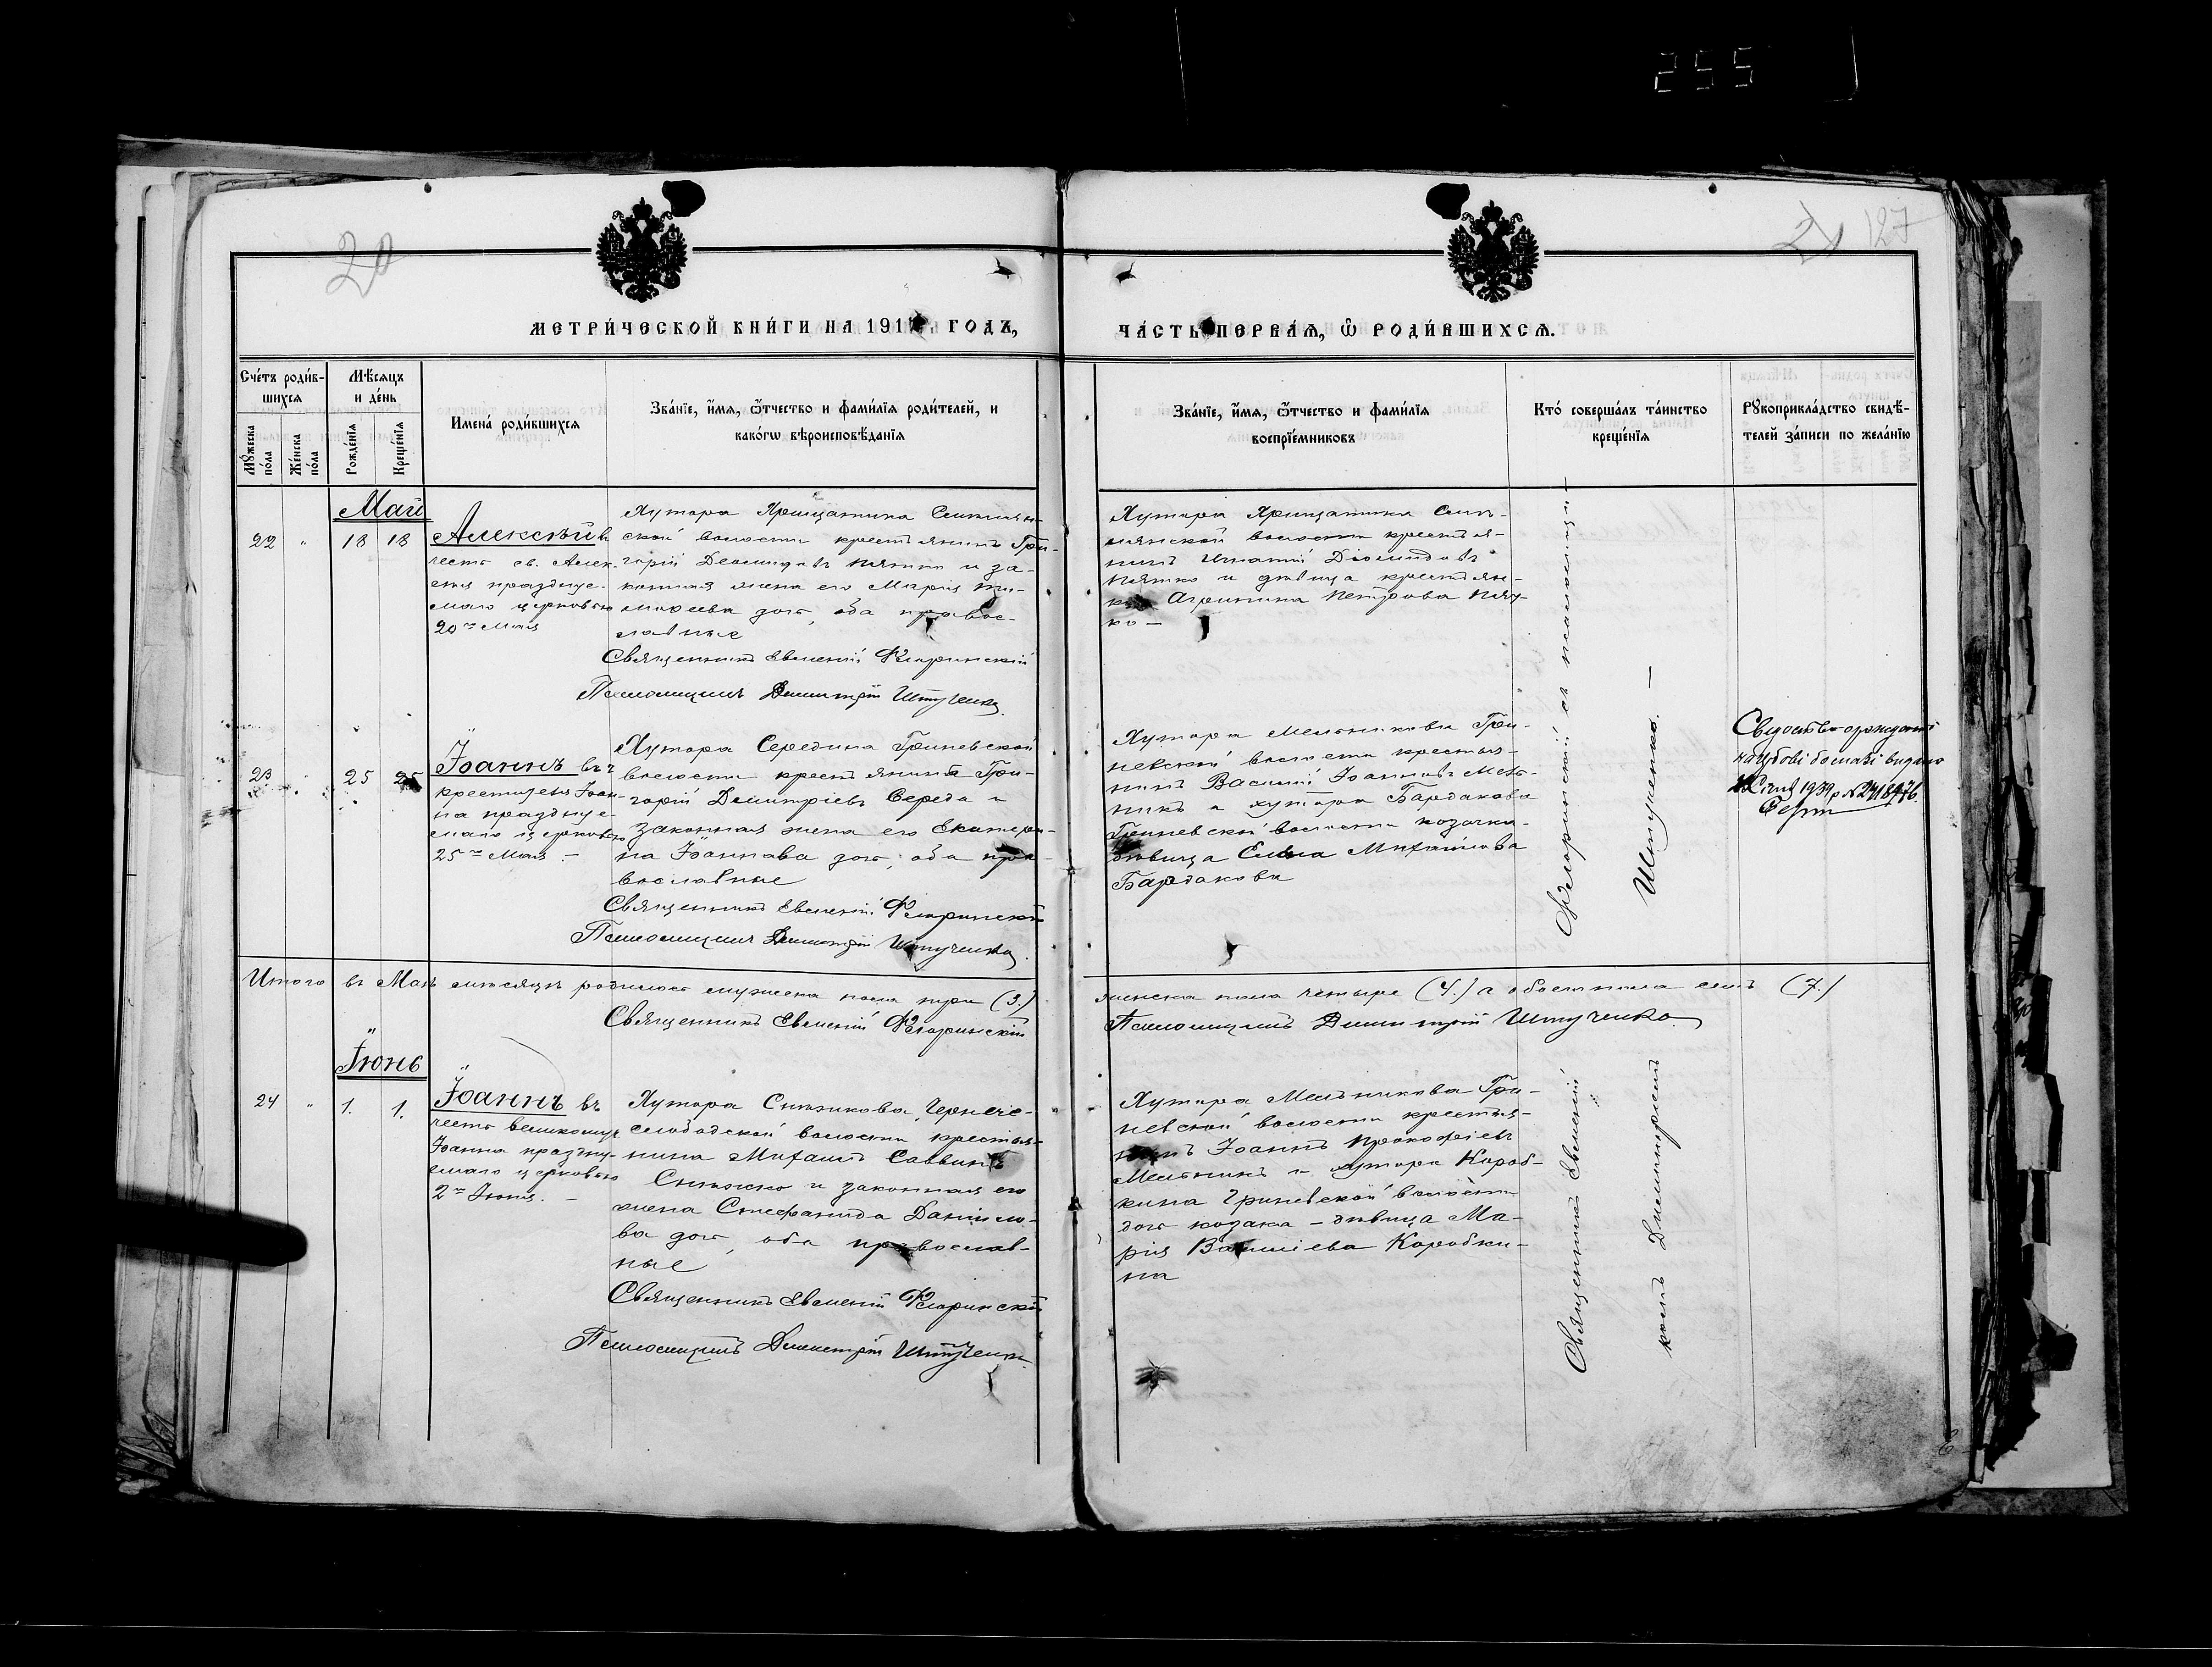 255
20
21 127
МЕТРИ́ЧЕСКОЙ КНИ́ГИ НА 191 ГОДЪ,
ЧА́СТЬ ПЕРВА́Ѧ, Ѽ РОДИ́ВШИХСѦ.
Сче́тъ роди́в-
шихсѧ
Мꙋ́жеска по́ла
Же́нска по́ла
Мѣ́сѧцъ
и де́нь
Рожде́нїѧ
Креще́нїѧ
Имена̀ роди́вшихсѧ
Зва́нїе, и́мѧ, ѻ́тчество и фами́лїѧ роди́телей, и
како́гѡ вѣроисповѣ́данїѧ
Зва́нїе, и́мѧ, ѻ́тчество и фами́лїѧ
воспрїе́мниковъ
Кто̀ соверша́лъ та́инство
креще́нїѧ
Рꙋкоприкла́дство свидѣ́-
телей за́писи по жела́нїю
Май
22 " 18 18
Алексѣй въ
честь св. Алек-
сѣя праздцуе-
маго церковью
20го Мая
Хутора
ской волости крестьянинъ Гри-
горій Деомидовъ Пятко и за-
конная жена его Марія Ти-
мофеева дочь, оба правос-
лавные
Священникъ Евменій Флоринскій
Псаломщикъ Димитрій Штученко.
Хутора
волости крестья-
нинъ Игнатій Діомидовъ
Пятко и дѣвица крестьян-
ка Агрипина Петрова Пят-
ко —
23 " 25 25
Іоаннъ въ ч
крестителя Іоан-
на празднуе-
маго церковью
25го Мая. —
Хутора Середина Гриневской
волости крестьянинъ Гри-
горій Димитріевъ Середа и
законная жена его Екатери-
на Іоаннова дочь, оба пра-
вославные
Священникъ Евменій Флоринскій
Псаломщикъ Димитрій Штученко.
Хутора Мельникова Гри-
невской волости крестья-
нинъ Василій Іоанновъ Мель-
никъ и хутора Бардакова
Гриневской волости козачка
дѣвица Елена Михайлова
Бардакова
Флоринскій съ псаломщи-
Штученко. —
на гербові бомазі видано
1939 р №
Итого въ Маѣ мѣсяцѣ родилось мужеска пола три (3.)
женска пола четыре (4.) а обоего пола семь (7.)
Священникъ Евменій Флоринскій
Псаломщикъ Димитрій Штученко.
Іюнь
24 " 1. 1.
Іоаннъ въ
честь великомуч
Іоанна праздну-
емаго церковью
2го Іюня. —
Хутора Снѣжкова, Чернече-
слободской волости крестья-
нинъ Михаилъ Саввинъ
Снѣжко и законная его
жена Стефанида Даніило-
ва дочь, оба православ-
ные
Священникъ Евменій Флоринскій
Псаломщикъ Димитрій Штученко.
Хутора Мельникова Гри-
невской волости крестья-
нинъ Іоаннъ Прокофіевъ
Мельникъ и хутора Короб-
кина Гриневской волости
дочь козака — дѣвица Ма-
рія Василіева Коробки-
на
Священникъ Евменій
комъ Димитріемъ